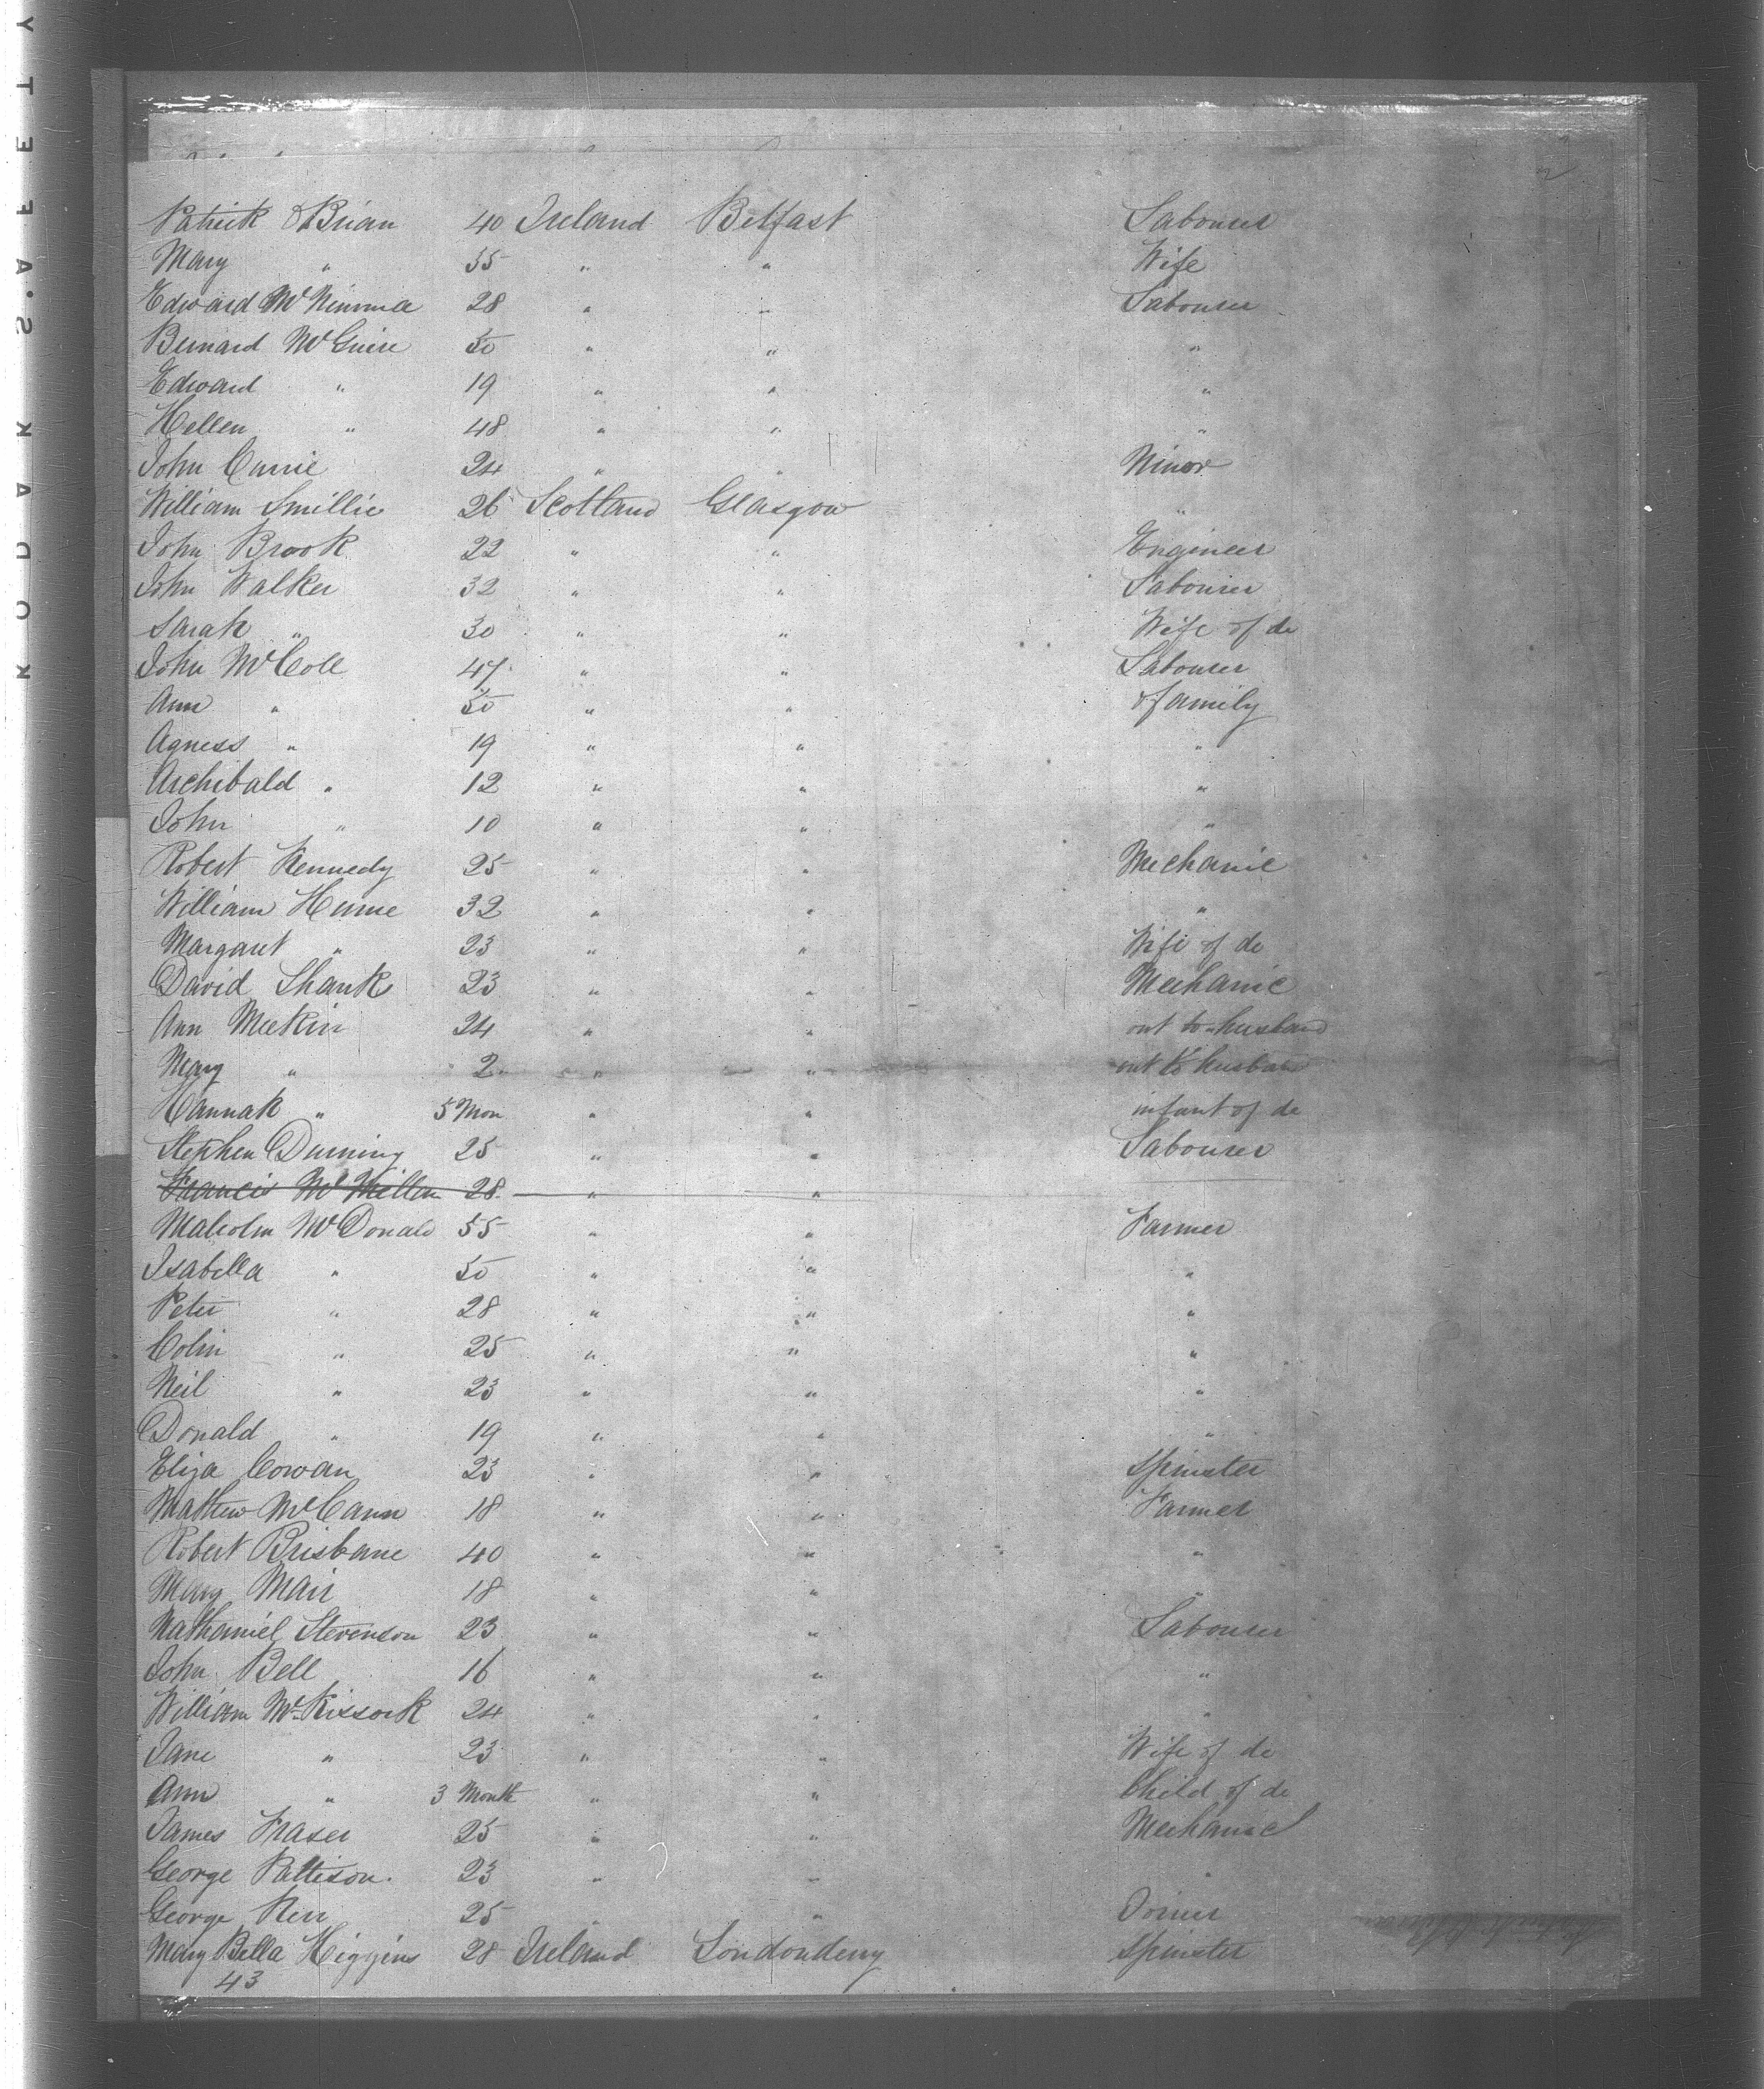 Patrick O'Brian 40 Ireland Belfast Labourer
Mary " 35 " " Wife
Edward 28 " " Labourer
Bernard McGuire 50 " " "
Edward " 19 " " "
Hellen " 48 " " "
John Currie 24 " " Minor
William Smillie 26 Scotland Glasgow "
John Brook 22 " " Engineer
John Walker 32 " " Labourer
Sarah " 30 " " Wife of do
John McColl 47 " " Labourer
Ann " 50 " " & family
Agness " 19 " " "
Archibald " 12 " " "
John " 10 " " "
Robert Kennedy 25 " " Mechanic
William Hume 32 " " "
Margaret " 23 " " Wife of do
David Shanks 23 " " Mechanic
Ann Meekin 24 " " out to husband
Mary " 2 " " out to husband
Hannah " 5 Mon " " infant of do
Stephen Durning 25 " " Labourer
Francis McMillan 28 " "
Malcolm McDonald 55 " " Farmer
Isabella " 50 " " "
Peter " 28 " " "
Colin " 25 " " "
Neil " 23 " " "
Donald " 19 " " "
Eliza Cowan 23 " " Spinster
Mathew McCann 18 " " Farmer
Robert Brisbane 40 " " "
Mary Mair 18 " " "
Nathaniel Stevenson 23 " " Labourer
John Bell 16 " " "
William McKissock 24 " " "
Jane " 23 " " Wife of do
Ann " 3 Month " " Child of do
James Fraser 25 " " Mechanic
George Pattison 23 " " "
George Kerr 25 " " Joiner
Mary Bella Higgins 28 Ireland Londonderry Spinster
43